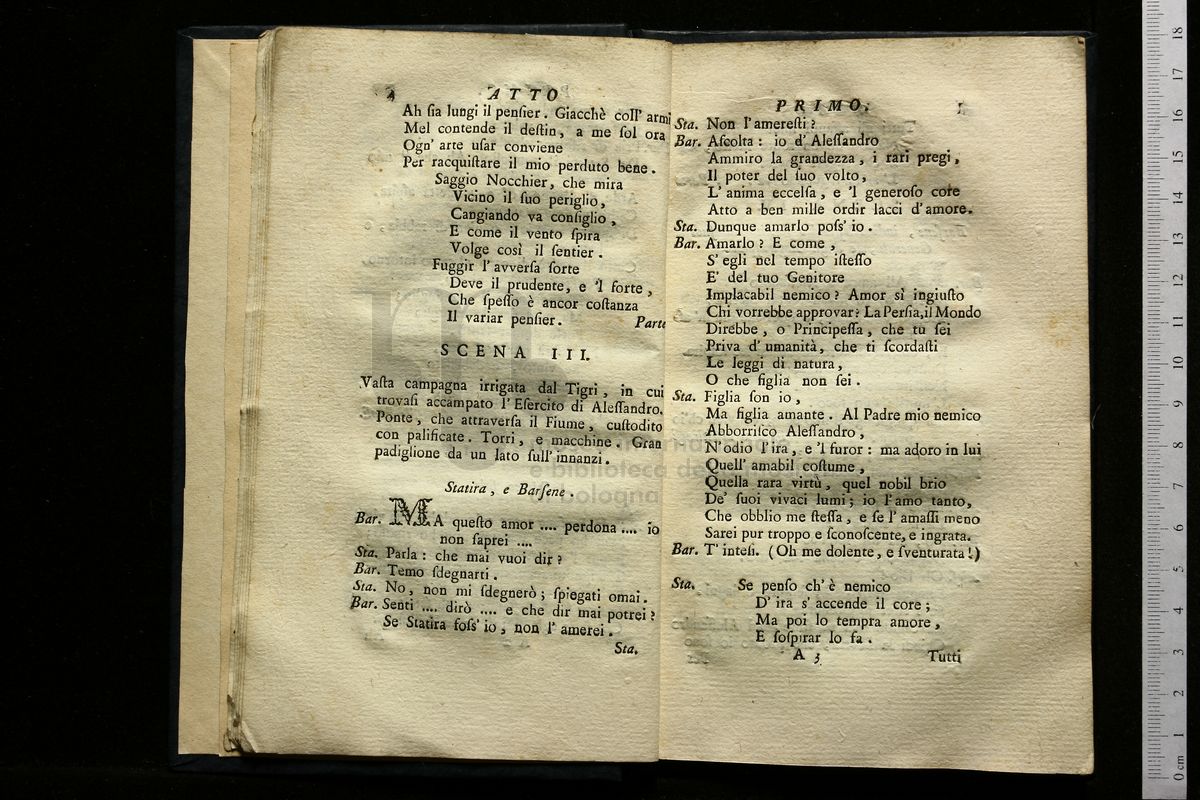 4 ATTO
Ah ſia lungi il penſier. Giacchè coll' armi
Mel contende il deſtin, a me ſol ora
Ogn' arte uſar conviene
Per racquiſtare il mio perduto bene.
Saggio Nocchier, che mira
Vicino il ſuo periglio,
Cangiando va conſiglio,
E come il vento ſpira
Volge così il ſentier.
Fuggir l'avverſa ſorte
Deve il prudente, e 'l forte,
Che ſpeſſo è ancor coſtanza
Il variar penſier. Parte
SCENA III.
Vaſta campagna irrigata dal Tigri, in cui
trovaſi accampato l'Eſercito di Aleſſandro.
Ponte, che attraverſa il Fiume, cuſtodito
con palificate. Torri, e macchine. Gran
padiglione da un lato ſull'innanzi.
Statira, e Barſene.
Bar. MA queſto amor .... perdona .... io
non ſaprei ....
Sta. Parla: che mai vuoi dir?
Bar. Temo ſdegnarti.
Sta. No, non mi ſdegnerò; ſpiegati omai.
Bar. Senti .... dirò .... e che dir mai potrei?
Se Statira foſs' io, non l'amerei.
Sta.
PRIMO. 5
Sta. Non l'amereſti?
Bar. Aſcolta: io d'Aleſſandro
Ammiro la grandezza, i rari pregi,
Il poter del ſuo volto,
L'anima eccelſa, e 'l generoſo core
Atto a ben mille ordir lacci d'amore.
Sta. Dunque amarlo poſs' io.
Bar. Amarlo? E come,
S' egli nel tempo iſteſſo
E' del tuo Genitore
Implacabil nemico? Amor sì ingiuſto
Chi vorrebbe approvar? La Perſia, il Mondo
Direbbe, o Principeſſa, che tu ſei
Priva d'umanità, che ti ſcordaſti
Le leggi di natura,
O che figlia non ſei.
Sta. Figlia ſon io,
Ma figlia amante. Al Padre mio nemico
Abborriſco Aleſſandro,
N'odio l'ira, e 'l furor: ma adoro in lui
Quell' amabil coſtume,
Quella rara virtù, quel nobil brio
De' ſuoi vivaci lumi; io l'amo tanto,
Che obblio me ſteſſa, e ſe l'amaſſi meno
Sarei pur troppo e ſconoſcente, e ingrata.
Bar. T' inteſi. (Oh me dolente, e ſventurata!)
Sta. Se penſo ch' è nemico
D' ira s' accende il core;
Ma poi lo tempra amore,
E ſoſpirar lo fa.
A 3 Tutti
e biblioteca della
bologna
0 cm 1 2 3 4 5 6 7 8 9 10 11 12 13 14 15 16 17 18